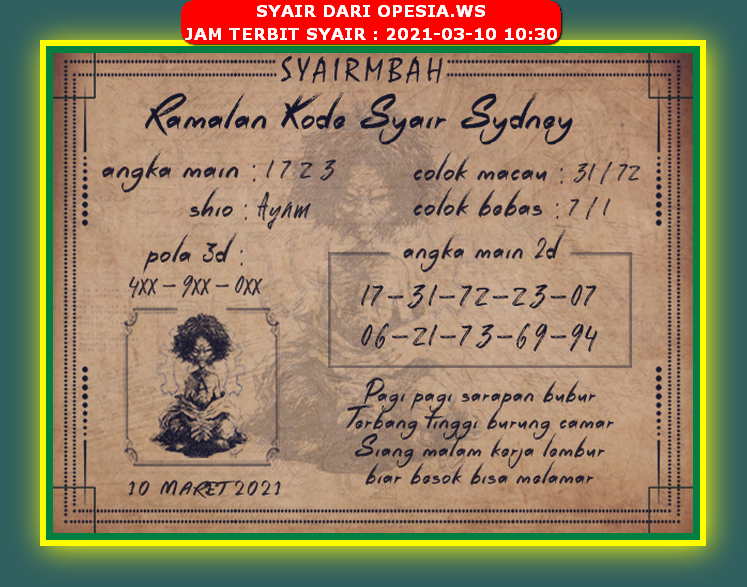 SYAIR DARI OPESIA.WS
JAM TERBIT SYAIR : 2021-03-10 10:30
SYAIRMBAH
Ramalan Kode Syair Sydney
angka main : 1 7 2 3
colok macau : 31 / 72
shio : Ayam
colok bebas : 7 / 1
pola 3d :
4XX - 9XX - 0XX
angka main 2d
17-31-72-23-07
06-21-73-69-94
Pagi pagi sarapan bubur
Terbang tinggi burung camar
Siang malam kerja lembur
biar besok bisa melamar
10 MARET 2021